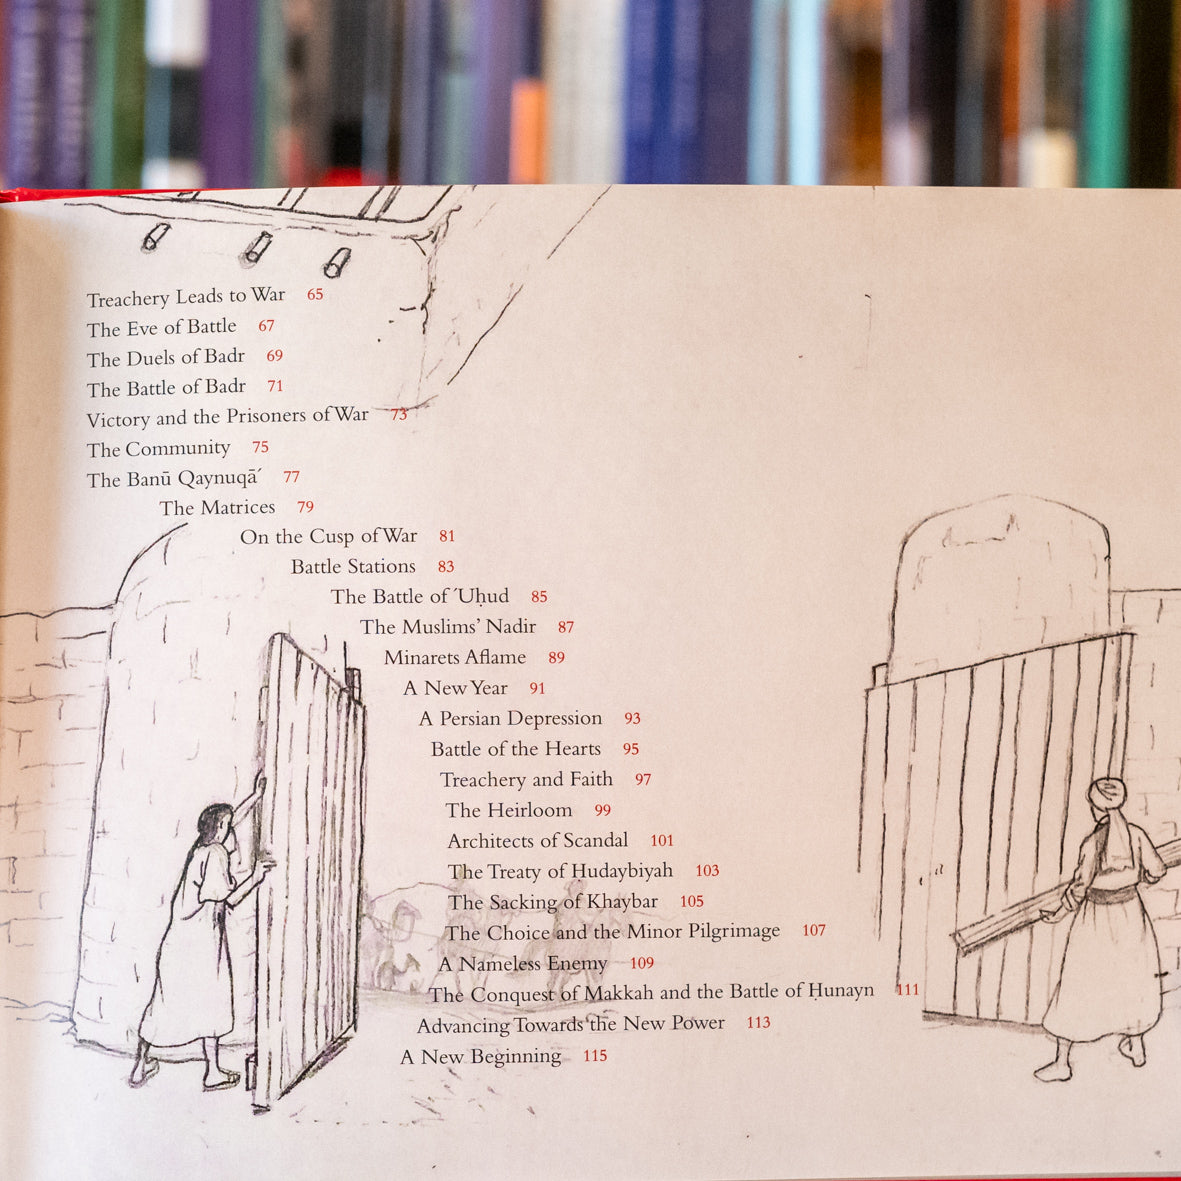 Treachery Leads to War 65
The Eve of Battle 67
The Duels of Badr 69
The Battle of Badr 71
Victory and the Prisoners of War 73
The Community 75
The Banū Qaynuqā´ 77
The Matrices 79
On the Cusp of War 81
Battle Stations 83
The Battle of ´Uḥud 85
The Muslims’ Nadir 87
Minarets Aflame 89
A New Year 91
A Persian Depression 93
Battle of the Hearts 95
Treachery and Faith 97
The Heirloom 99
Architects of Scandal 101
The Treaty of Hudaybiyah 103
The Sacking of Khaybar 105
The Choice and the Minor Pilgrimage 107
A Nameless Enemy 109
The Conquest of Makkah and the Battle of Ḥunayn 111
Advancing Towards the New Power 113
A New Beginning 115